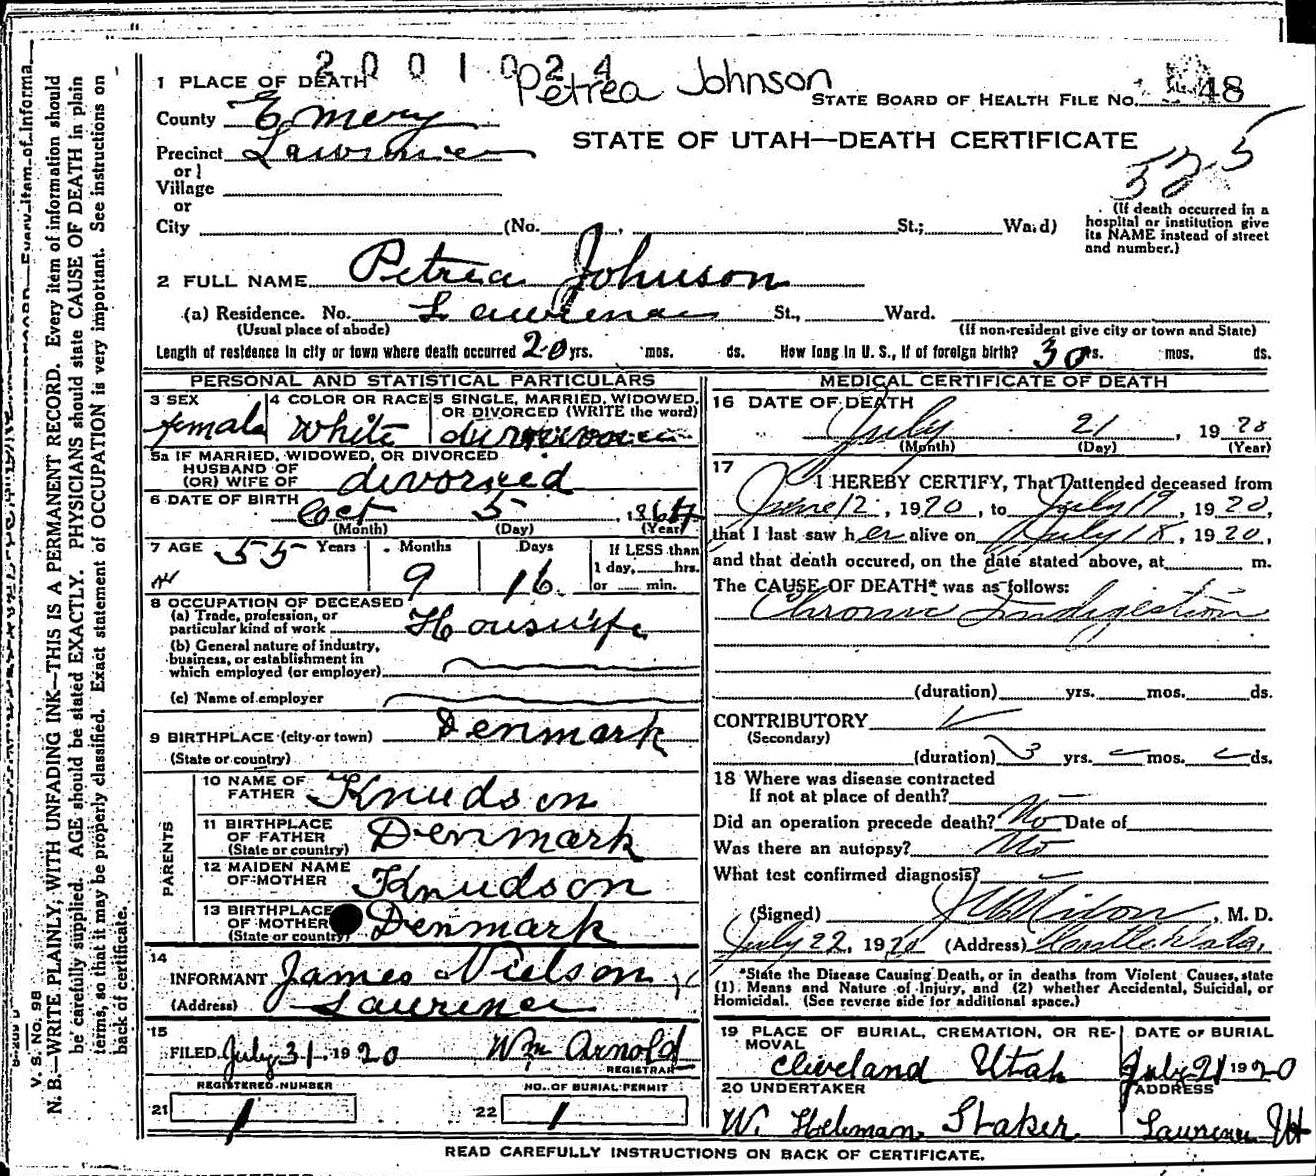 2001024
1 PLACE OF DEATH Petrea Johnson STATE BOARD OF HEALTH FILE No. 48
County Emery
STATE OF UTAH—DEATH CERTIFICATE
Precinct Lawrence
or
Village
or
City (No. , St.; Ward)
525
(If death occurred in a
hospital or institution give
its NAME instead of street
and number.)
2 FULL NAME Petrea Johnson
(a) Residence. No. Lawrence St., Ward.
(Usual place of abode) (If non-resident give city or town and State)
Length of residence in city or town where death occurred 20 yrs. mos. ds. How long in U. S., if of foreign birth? 30 yrs. mos. ds.
PERSONAL AND STATISTICAL PARTICULARS
3 SEX 4 COLOR OR RACE 5 SINGLE, MARRIED, WIDOWED,
OR DIVORCED (WRITE the word)
female White
5a IF MARRIED, WIDOWED, OR DIVORCED
HUSBAND OF
(OR) WIFE OF divorced
6 DATE OF BIRTH Oct 5, 186
(Month) (Day) (Year)
7 AGE 55 Years 9 Months 16 Days If LESS than
1 day, hrs.
or min.
8 OCCUPATION OF DECEASED
(a) Trade, profession, or
particular kind of work Houswife
(b) General nature of industry,
business, or establishment in
which employed (or employer)
(c) Name of employer
9 BIRTHPLACE (city or town) Denmark
(State or country)
PARENTS
10 NAME OF
FATHER Knudson
11 BIRTHPLACE
OF FATHER
(State or country) Denmark
12 MAIDEN NAME
OF MOTHER Knudson
13 BIRTHPLACE
OF MOTHER
(State or country) Denmark
14
INFORMANT James Nielson
(Address) Lawrence
15
FILED July 31, 1920 Wm Arnold
REGISTRAR
REGISTERED NUMBER NO. OF BURIAL PERMIT
21 1 22 1
MEDICAL CERTIFICATE OF DEATH
16 DATE OF DEATH
July 21, 1920
(Month) (Day) (Year)
17
I HEREBY CERTIFY, That I attended deceased from
June 12, 1920, to July 19, 1920,
that I last saw her alive on July 18, 1920,
and that death occured, on the date stated above, at m.
The CAUSE OF DEATH* was as follows:
Chronic Indigestion
(duration) yrs. mos. ds.
CONTRIBUTORY
(Secondary)
(duration) 3 yrs. mos. ds.
18 Where was disease contracted
If not at place of death?
Did an operation precede death? No Date of
Was there an autopsy? No
What test confirmed diagnosis?
(Signed) , M. D.
July 22, 1920 (Address) Castle Dale,
*State the Disease Causing Death, or in deaths from Violent Causes, state
(1) Means and Nature of Injury, and (2) whether Accidental, Suicidal, or
Homicidal. (See reverse side for additional space.)
19 PLACE OF BURIAL, CREMATION, OR RE-
MOVAL DATE OF BURIAL
Cleveland Utah July 21 1920
20 UNDERTAKER ADDRESS
W. Heleman Staker Lawrence Ut
READ CAREFULLY INSTRUCTIONS ON BACK OF CERTIFICATE.
V. S. No. 98
N. B.—WRITE PLAINLY, WITH UNFADING INK—THIS IS A PERMANENT RECORD. Every item of information should
be carefully supplied. AGE should be stated EXACTLY. PHYSICIANS should state CAUSE OF DEATH in plain
terms, so that it may be properly classified. Exact statement of OCCUPATION is very important. See instructions on
back of certificate.